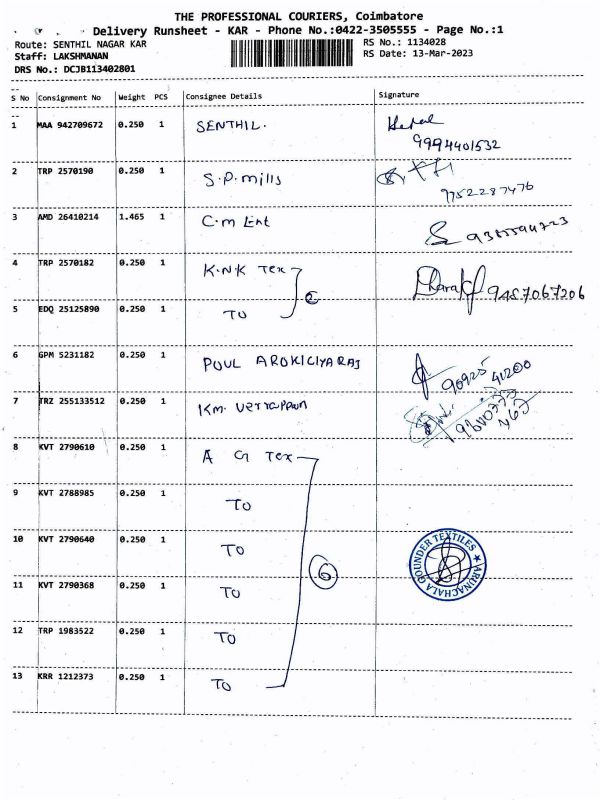 THE PROFESSIONAL COURIERS, Coimbatore
Delivery Runsheet - KAR - Phone No.:0422-3505555 - Page No.:1
Route: SENTHIL NAGAR KAR RS No.: 1134028
Staff: LAKSHMANAN RS Date: 13-Mar-2023
DRS No.: DCJB113402801
S No Consignment No Weight PCS Consignee Details Signature
1 MAA 942709672 0.250 1 SENTHIL.
9994401532
2 TRP 2570190 0.250 1 S.P.mills
9752287476
3 AMD 26410214 1.465 1 C.m Ent
4 TRP 2570182 0.250 1 K.N.K Tex 2
9487067206
5 EDQ 25125890 0.250 1 TO
6 GPM 5231182 0.250 1 POUL AROKICIYARAJ
90925 40200
7 TRZ 255133512 0.250 1 Km.
8 KVT 2790610 0.250 1 A G Tex
9 KVT 2788985 0.250 1 TO
10 KVT 2790640 0.250 1 TO
ARUNACHALA GOUNDER TEXTILES
11 KVT 2790368 0.250 1 TO 6
12 TRP 1983522 0.250 1 TO
13 KRR 1212373 0.250 1 TO